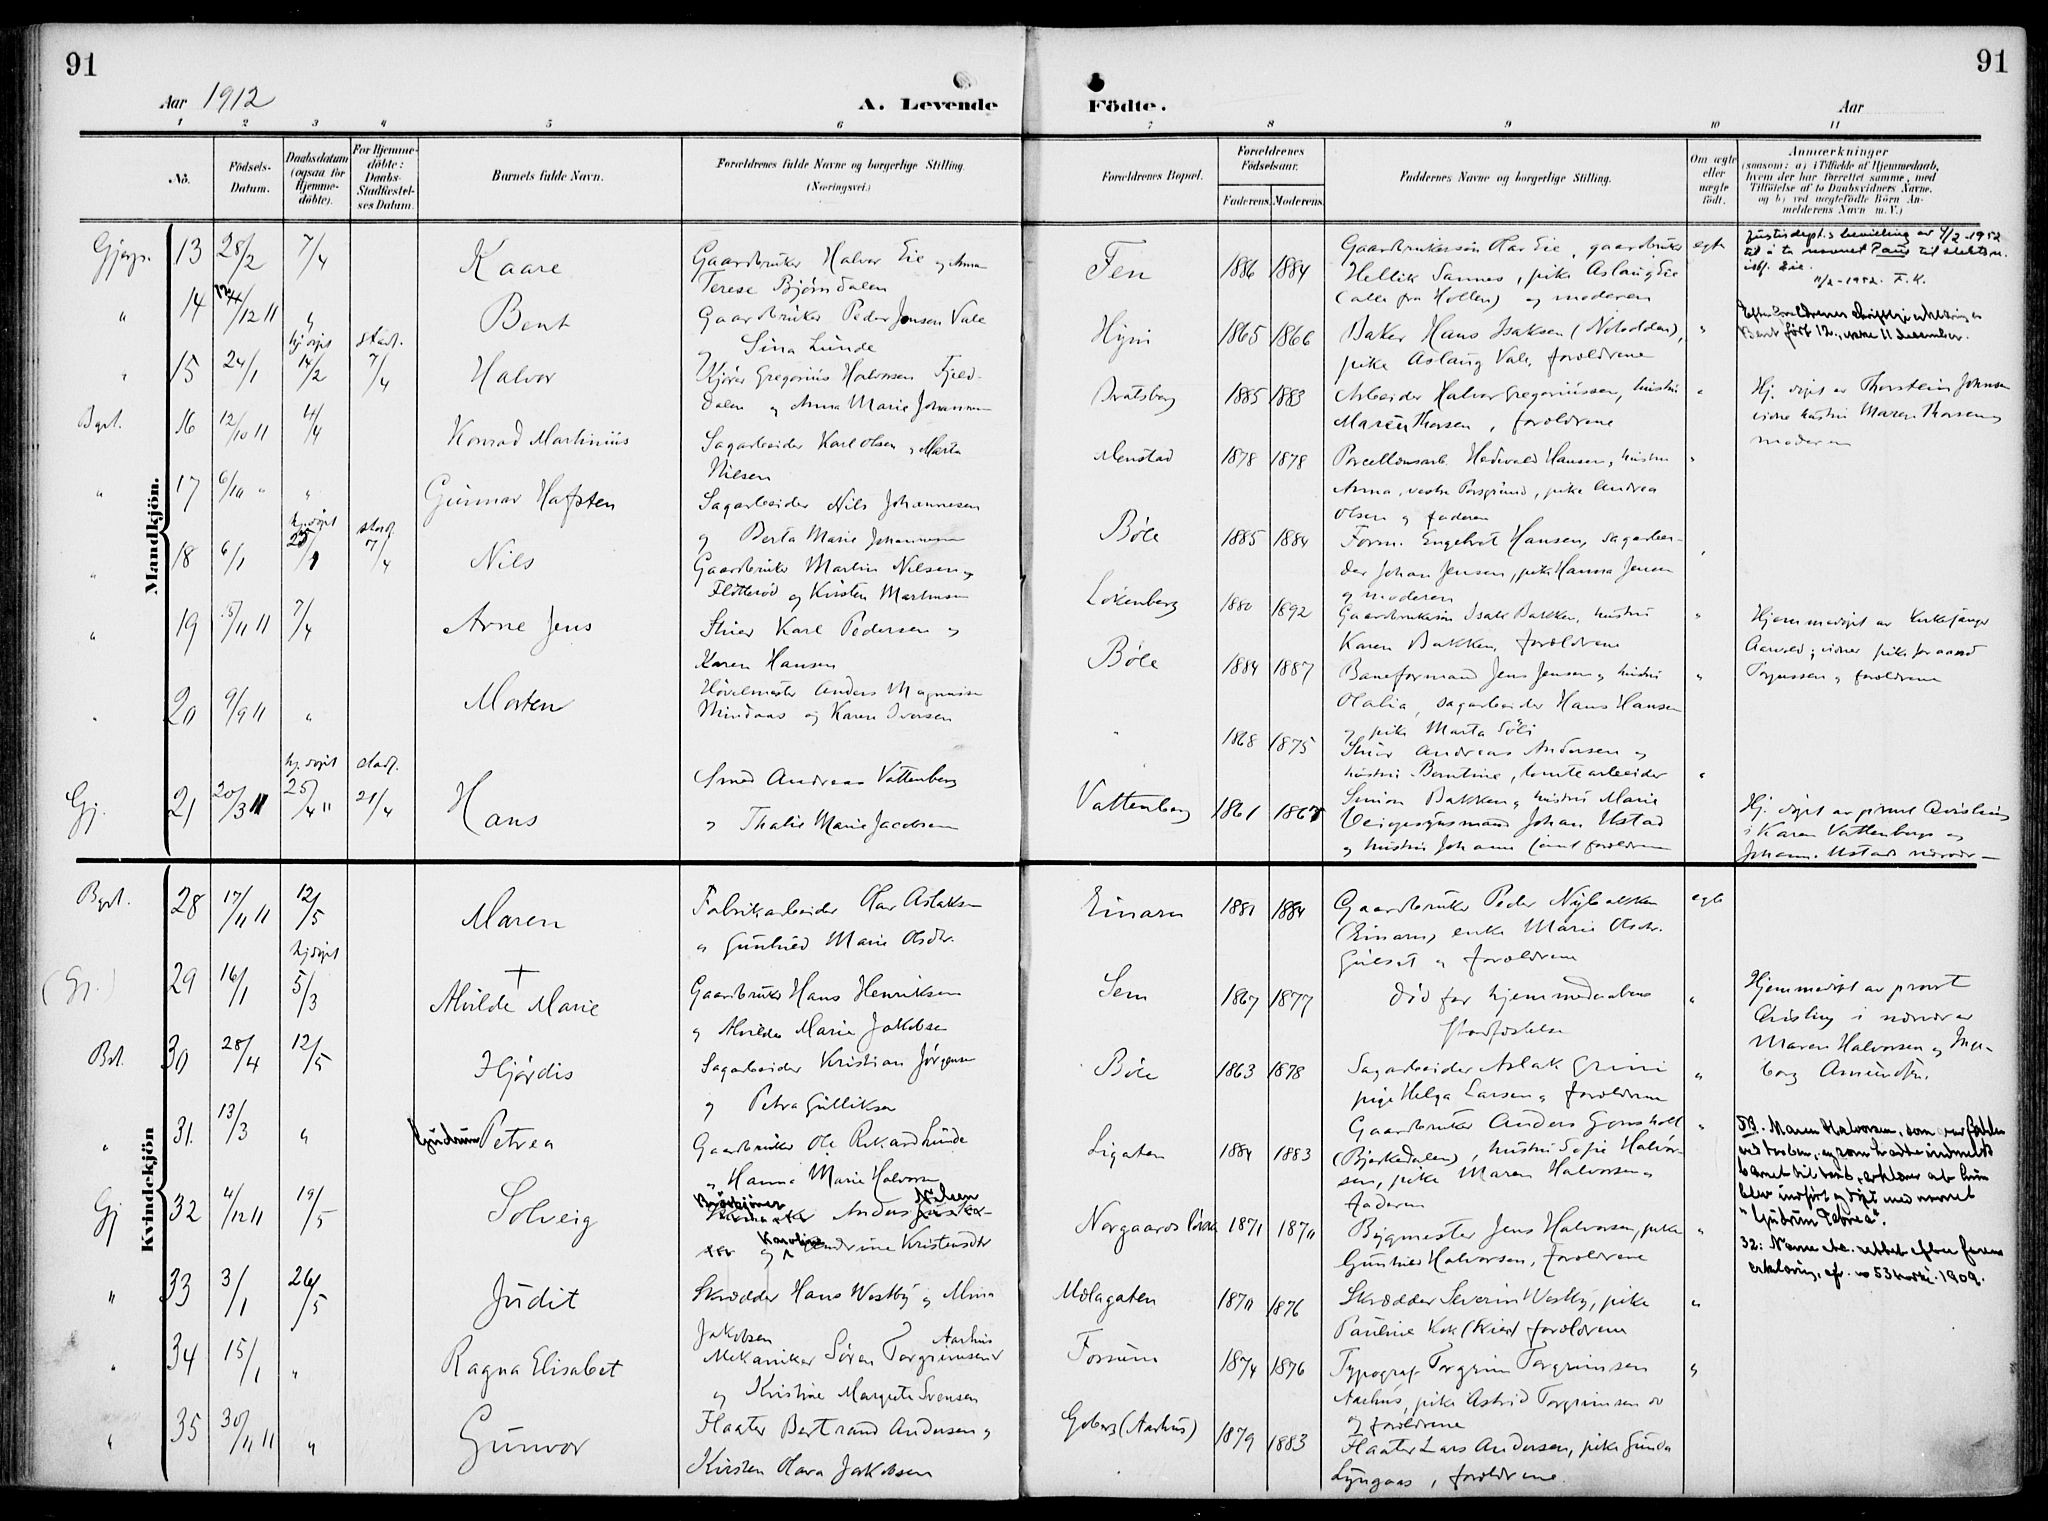 91
91
Aar 1912
A. Levende
Födte.
Aar
1 2 3 4 5 6 7 8 9 10 11
No.
Födsels-Datum.
Daabsdatum (ogsaa for Hjemme-döbte).
For Hjemme-döbte: Daabs-Stadfæstel-ses Datum.
Barnets fulde Navn.
Forældrenes fulde Navne og borgerlige Stilling. (Næringsvei.)
Forældrenes Bopæl.
Forældrenes Födselsaar.
Faderens. Moderens.
Faddernes Navne og borgerlige Stilling.
Om ægte eller uægte födt.
Anmærkninger
(saasom: a) i Tilfælde af Hjemmedaab,
hvem der har forrettet samme, med
Tilföielse af to Daabsvidners Navne,
og b) ved uægtefödte Börn An-
melderens Navn m. V.)
Mandkjön.
Gjerp. 13 28/2 7/4 Kaare
Gaardbruker Halvor Eie og Anna
Terese Bjørndalen
Fen 1886 1884
Gaardbrukersøn Olav Eie, gaardbruker
Hellik Sannes, pike Aslaug Eie
(alle fra Hollen) og moderen
egte
Justisdept.s bevilling av 4/2-1952
til å ta navnet Paus til slektsn.
istf. Eie.
11/2-1952. F.K.
" 14 /12 11 " Bent
Gaardbruker Peder Jensen Vale
og Sina Lunde
Hyni 1865 1866
Baker Hans Isaksen (Notodden),
pike Aslaug Vale, forældrene
"
Bent født 12., ikke 11 december.
" 15 24/1 hj.døpt 14/2 stadf. 7/4 Halvor
Kjører Gregorius Halvorsen Fjeld-
dalen og Anna Marie Johannesen
Bratsberg 1885 1883
Arbeider Halvor Gregoriussen, hustru
Maren Thorsen, forældrene
"
Hj. døpt av Thorstein Johnsen
vidne hustru Maren Thorsen og
moderen
Bgst. 16 12/10 11 14/4 Konrad Martinius
Sagarbeider Karl Olsen og Marta
Nilsen
Menstad 1878 1878
Porcellænsarb. Hedevald Hansen, hustru
Anna, vestre Porsgrund, pike Andrea
Olsen og faderen
"
" 17 6/10 " " Gunnar Hafsten
Sagarbeider Nils Johannesen
og Berta Marie Johannesen
Bøle 1885 1884
Form. Engebret Hansen, sagarbei-
der Johan Jensen, pike Hanna Jensen
og moderen
" 18 6/1 hj.døpt 25/1 stadf. 7/4 Nils
Gaardbruker Martin Nilsen og
Flötterød og Kirsten Martinsen
Løkenberg 1880 1892
Gaardbrukersøn Isak Bakken, hustru
Karen Bakken, forældrene
"
Hjemmedøpt av kirkesanger
Aarvold; vidner pike
Torjussen og forældrene
" 19 15/11 11 7/4 Arne Jens
Stuer Karl Pedersen og
Karen Hansen
Bøle 1884 1887
Baneformand Jens Jensen og hustru
Olalia, sagarbeider Hans Hansen
og pike Marta Søli
"
" 20 9/9 11 " Morten
Høvelmester Anders Magnus
Mindaas og Karen Iversen
" 1868 1875
Stuer Andreas Andersen og
hustru Berntine, tomtearbeider
Simon Bakken og hustru Marie
"
Gj. 21 20/3 11 hj.døpt 25/4 11 stadf. 21/4 Hans
Smed Andreas Vattenberg
og Thalie Marie Jacobsen
Vattenberg 1861 1867
Johan Ustad
og hustru Johanne samt forældrene
Hj. døpt av provst Qvisling
i Karen Vattenbergs og
Johann. Ustads nærvær —
Kvindekjön
Bgst. 28 17/11 11 12/5 Maren
Fabrikarbeider Olav Aslaksen
og Gunhild Marie Olsdtr.
Einaren 1881 1884
Gaardbruker Peder Nybakken
(Einaren), enke Marie Olsdtr.
Gulset og forældrene
egte
(Gj.) 29 16/1 hj.døpt 5/3 + Alvilde Marie
Gaardbruker Hans Henriksen
og Alvilde Marie Jakobsen
Sem 1867 1877
død før hjemmedaabens
stadfæstelse
"
Hjemmedøpt av provst
Qvisling i nærvær av
Maren Halvorsen og Inge-
borg Amundsen.
Bst. 30 28/4 12/5 Hjørdis
Sagarbeider Kristian Jørgensen
og Petra Gulliksen
Bøle 1863 1878
Sagarbeider Aslak Grini
pige Helga Larsen og forældrene
"
" 31. 13/3 " Gudrun Petrea
Gaardbruker Ole Rikard Lunde
og Hanna Marie Halvorsen
Ligaten 1884 1883
Gaardbruker Anders Gonsholt
(Bjerkedalen), hustru Sofie Halvor-
sen, pike Maren Halvorsen og
faderen
"
NB. Maren Halvorsen, som var fadder
ved daaben, og som hadde indmeldt
barnet til daab, erklærer at hun
blev indført og døpt med navnet
"Gudrun Petrea".
Gj 32 4/12 11 19/5 Solveig
Anders Nilsen
og Karoline Andrine Kristensdtr
Norgaards 1871 1870
Bygmester Jens Halvorsen, pike
Gunhild Halvorsen, forældrene
"
32: Navne etc. rettet efter farens
erklæring, cfr. no 53 1909.
" 33 3/1 26/5 Judit
Skrædder Hans Westby og Mina
Jakobsen
Mælagaten 1870 1876
Skrædder Severin Westby, pike
Pauline Kok (Skien) forældrene
"
" 34 15/1 " Ragna Elisabet
Mekaniker Søren Torgrimsen Aarhus
og Kristine Margrete Svensen
Forsum 1874 1876
Typograf Torgrim Torgrimsen
Aarhus, pike Astrid Torgrimsen
og forældrene
"
" 35 30/11 11 " Gunvor
Fløater Bertrand Andersen og
Kirsten Olava Jakobsen
(Aarhus) 1879 1883
Fløater Lars Andersen, pike Gunda
Lyngaas, forældrene.